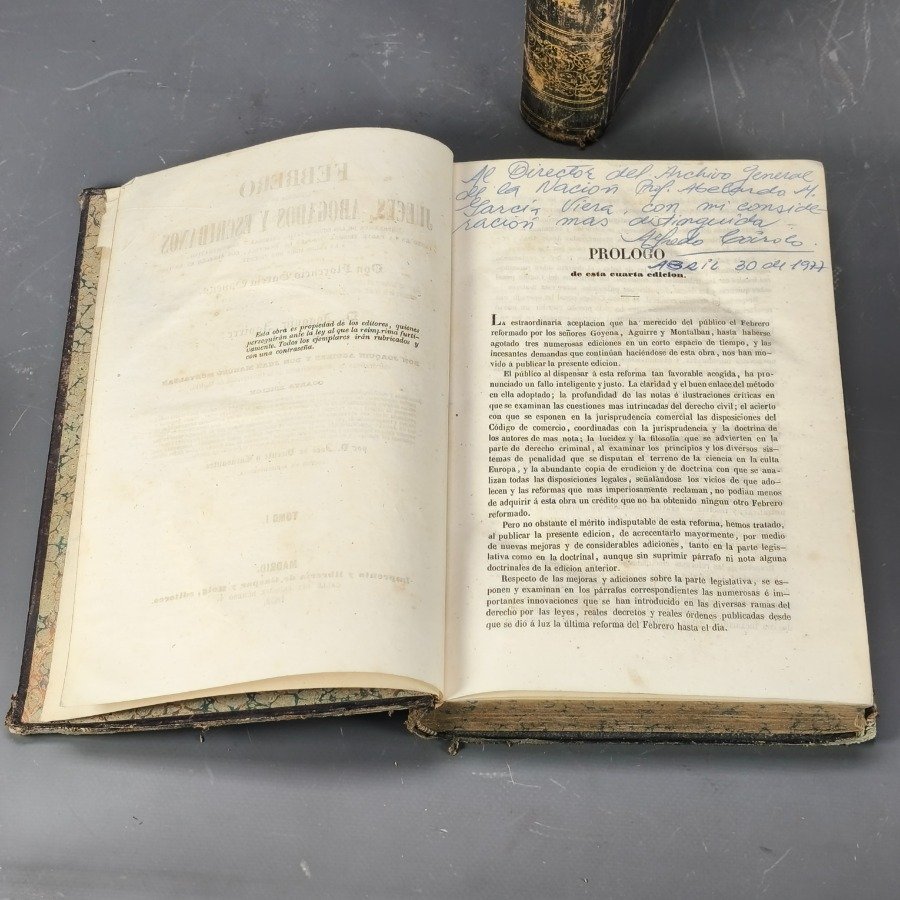 Esta obra es propiedad de los editores, quienes
perseguirán ante la ley al que la reimprima furti-
vamente. Todos los ejemplares irán rubricados y
con una contraseña.
FEBRERO
JUECES, ABOGADOS Y ESCRIBANOS
Don Florencio
TOMO I
MADRID:
Imprenta y librería de Gaspar y Roig, editores.
Al Director del Archivo General
de la Nacion Prof. Abelardo M.
García Viera, con mi conside-
ración mas distinguida
Alfredo
Abril 30 de 1977
PROLOGO
de esta cuarta edicion.
La estraordinaria aceptacion que ha merecido del público el Febrero
reformado por los señores Goyena, Aguirre y Montalban, hasta haberse
agotado tres numerosas ediciones en un corto espacio de tiempo, y las
incesantes demandas que continúan haciéndose de esta obra, nos han mo-
vido á publicar la presente edicion.
El público al dispensar á esta reforma tan favorable acogida, ha pro-
nunciado un fallo inteligente y justo. La claridad y el buen enlace del método
en ella adoptado; la profundidad de las notas é ilustraciones críticas en
que se examinan las cuestiones mas intrincadas del derecho civil; el acierto
con que se esponen en la jurisprudencia comercial las disposiciones del
Código de comercio, coordinadas con la jurisprudencia y la doctrina de
los autores de mas nota; la lucidez y la filosofía que se advierten en la
parte de derecho criminal, al examinar los principios y los diversos sis-
temas de penalidad que se disputan el terreno de la ciencia en la culta
Europa, y la abundante copia de erudicion y de doctrina con que se ana-
lizan todas las disposiciones legales, señalándose los vicios de que ado-
lecen y las reformas que mas imperiosamente reclaman, no podian menos
de adquirir á esta obra un crédito que no ha obtenido ningun otro Febrero
reformado.
Pero no obstante el mérito indisputable de esta reforma, hemos tratado,
al publicar la presente edicion, de acrecentarlo mayormente, por medio
de nuevas mejoras y de considerables adiciones, tanto en la parte legis-
lativa como en la doctrinal, aunque sin suprimir párrafo ni nota alguna
doctrinales de la edicion anterior.
Respecto de las mejoras y adiciones sobre la parte legislativa, se es-
ponen y examinan en los párrafos correspondientes las numerosas é im-
portantes innovaciones que se han introducido en las diversas ramas del
derecho por las leyes, reales decretos y reales órdenes publicadas desde
que se dió á luz la última reforma del Febrero hasta el dia.